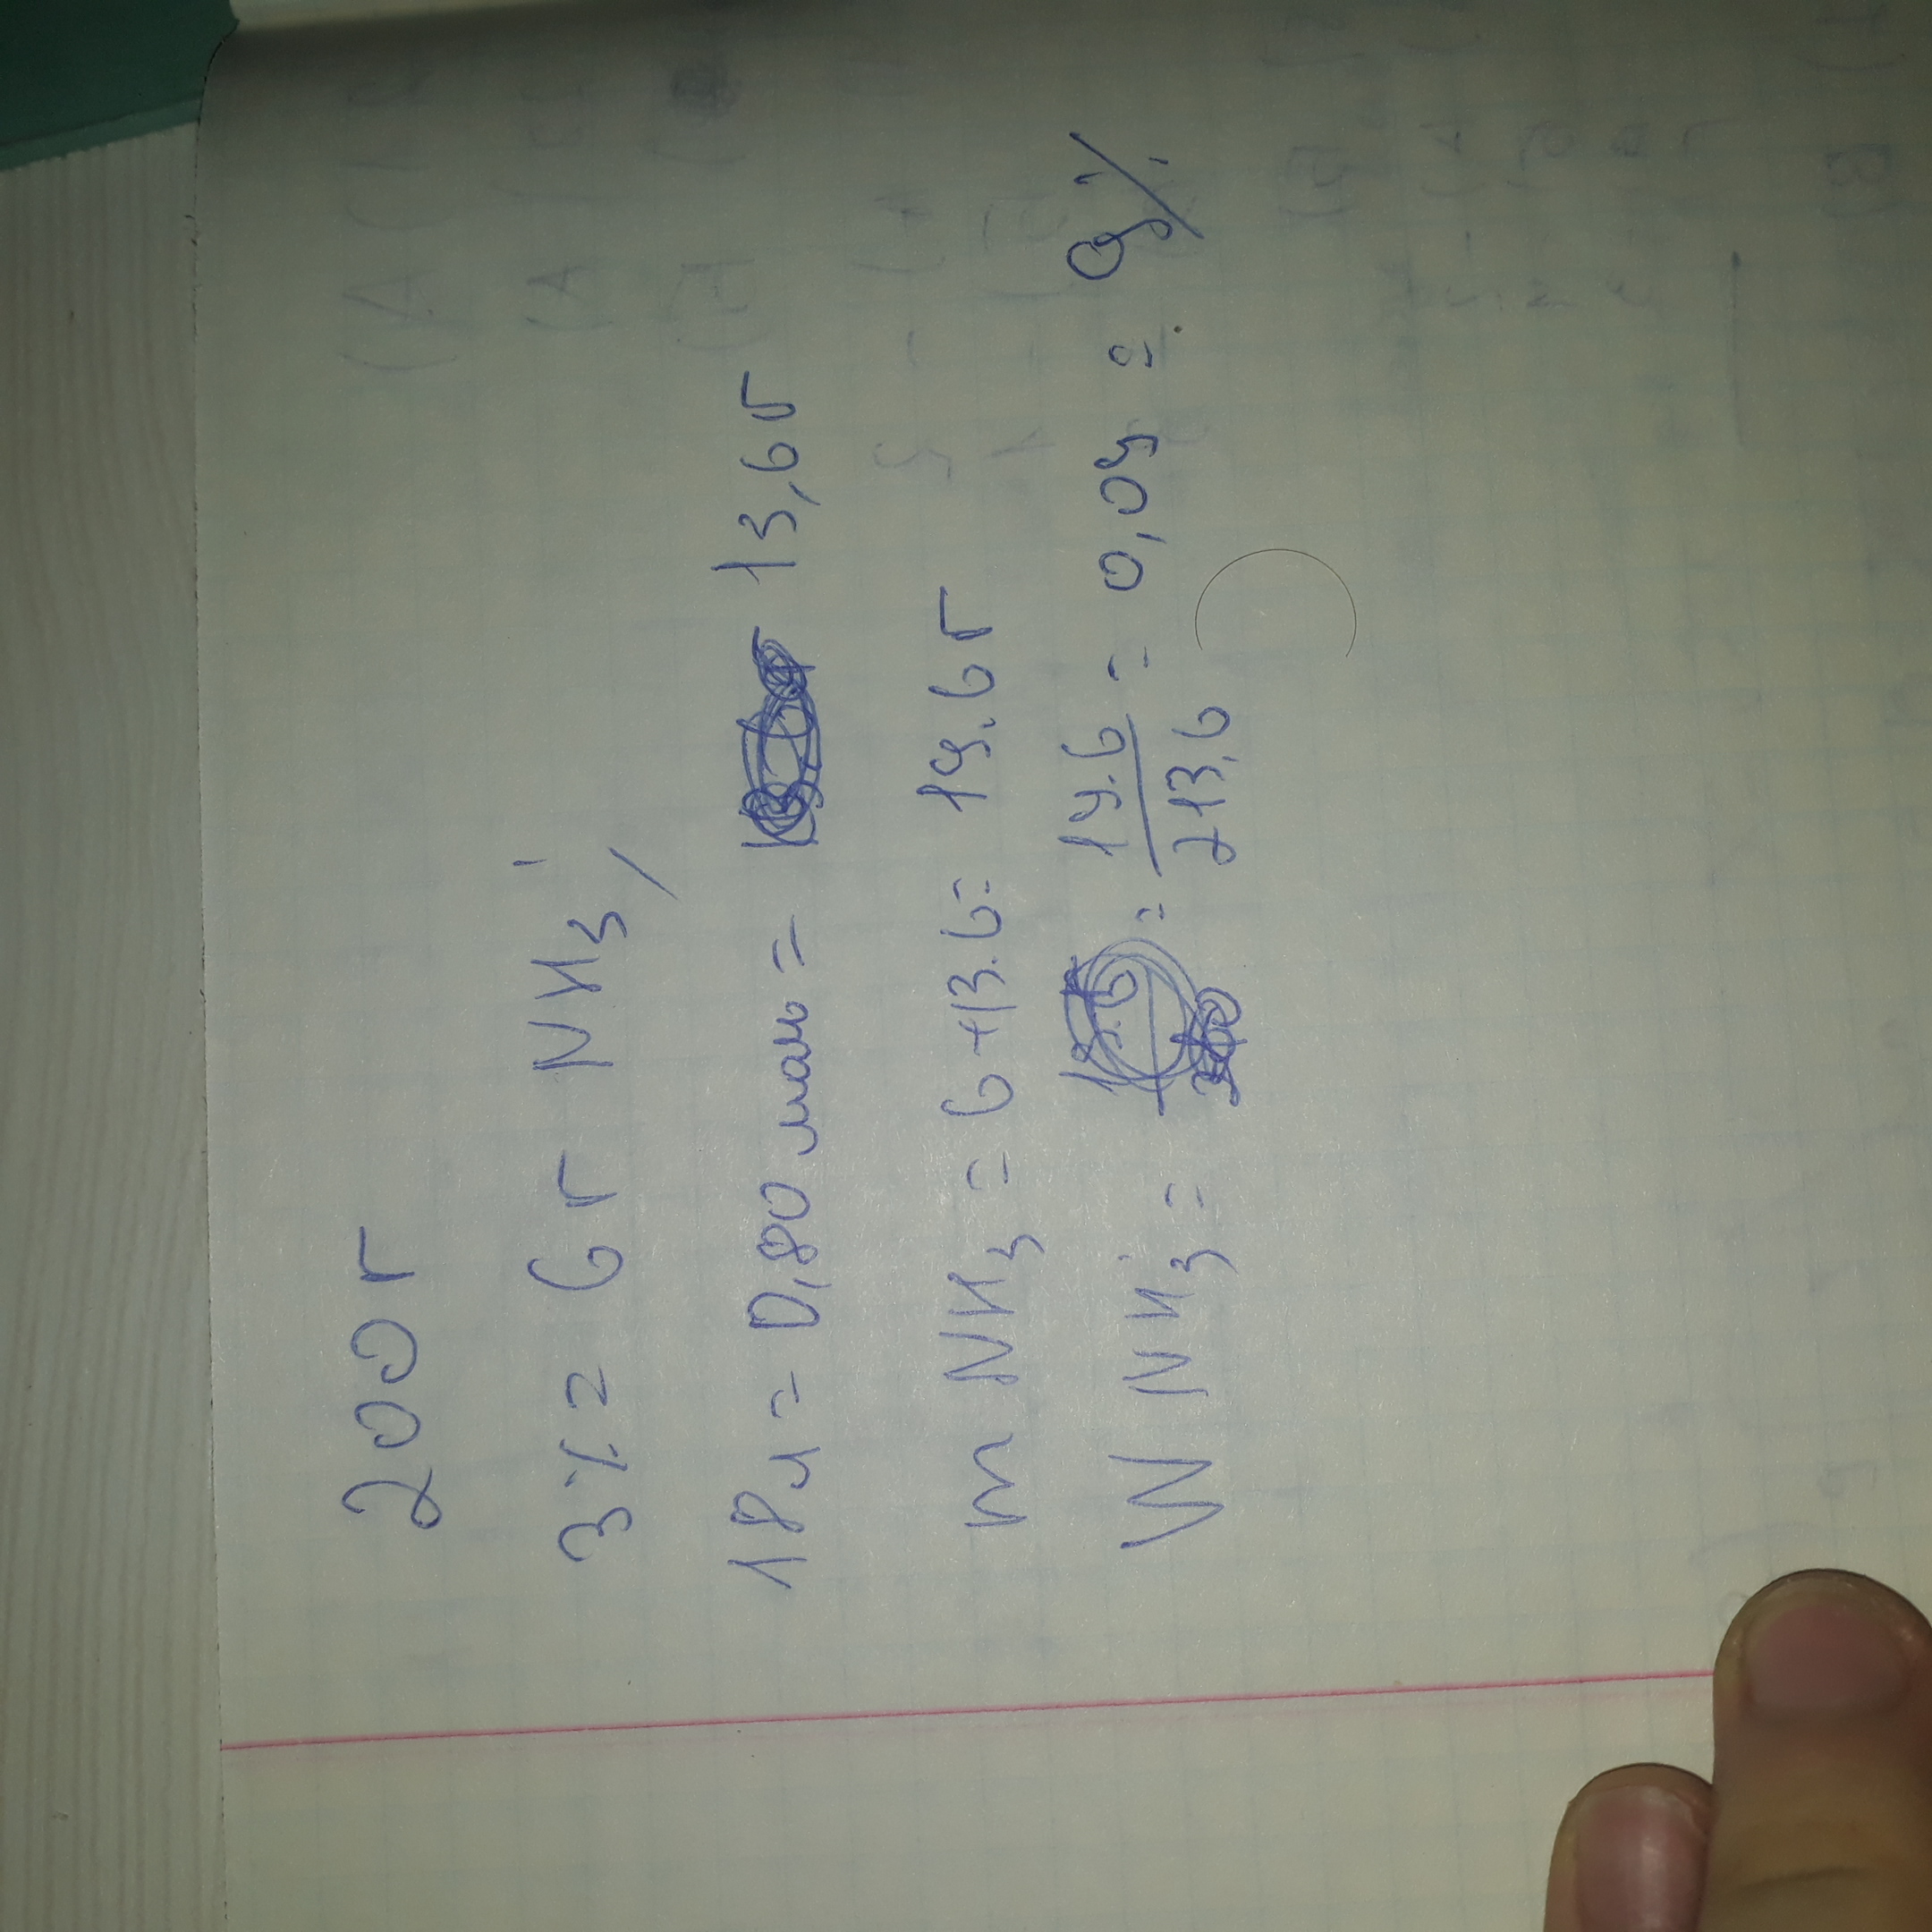 200 г
3% = 6 г NH3,
18 л = 0,80 моль = 13,6 г
m NH3 = 6 + 13.6 = 19.6 г
W NH3 = = 19.6 / 213,6 = 0,09 = 9%